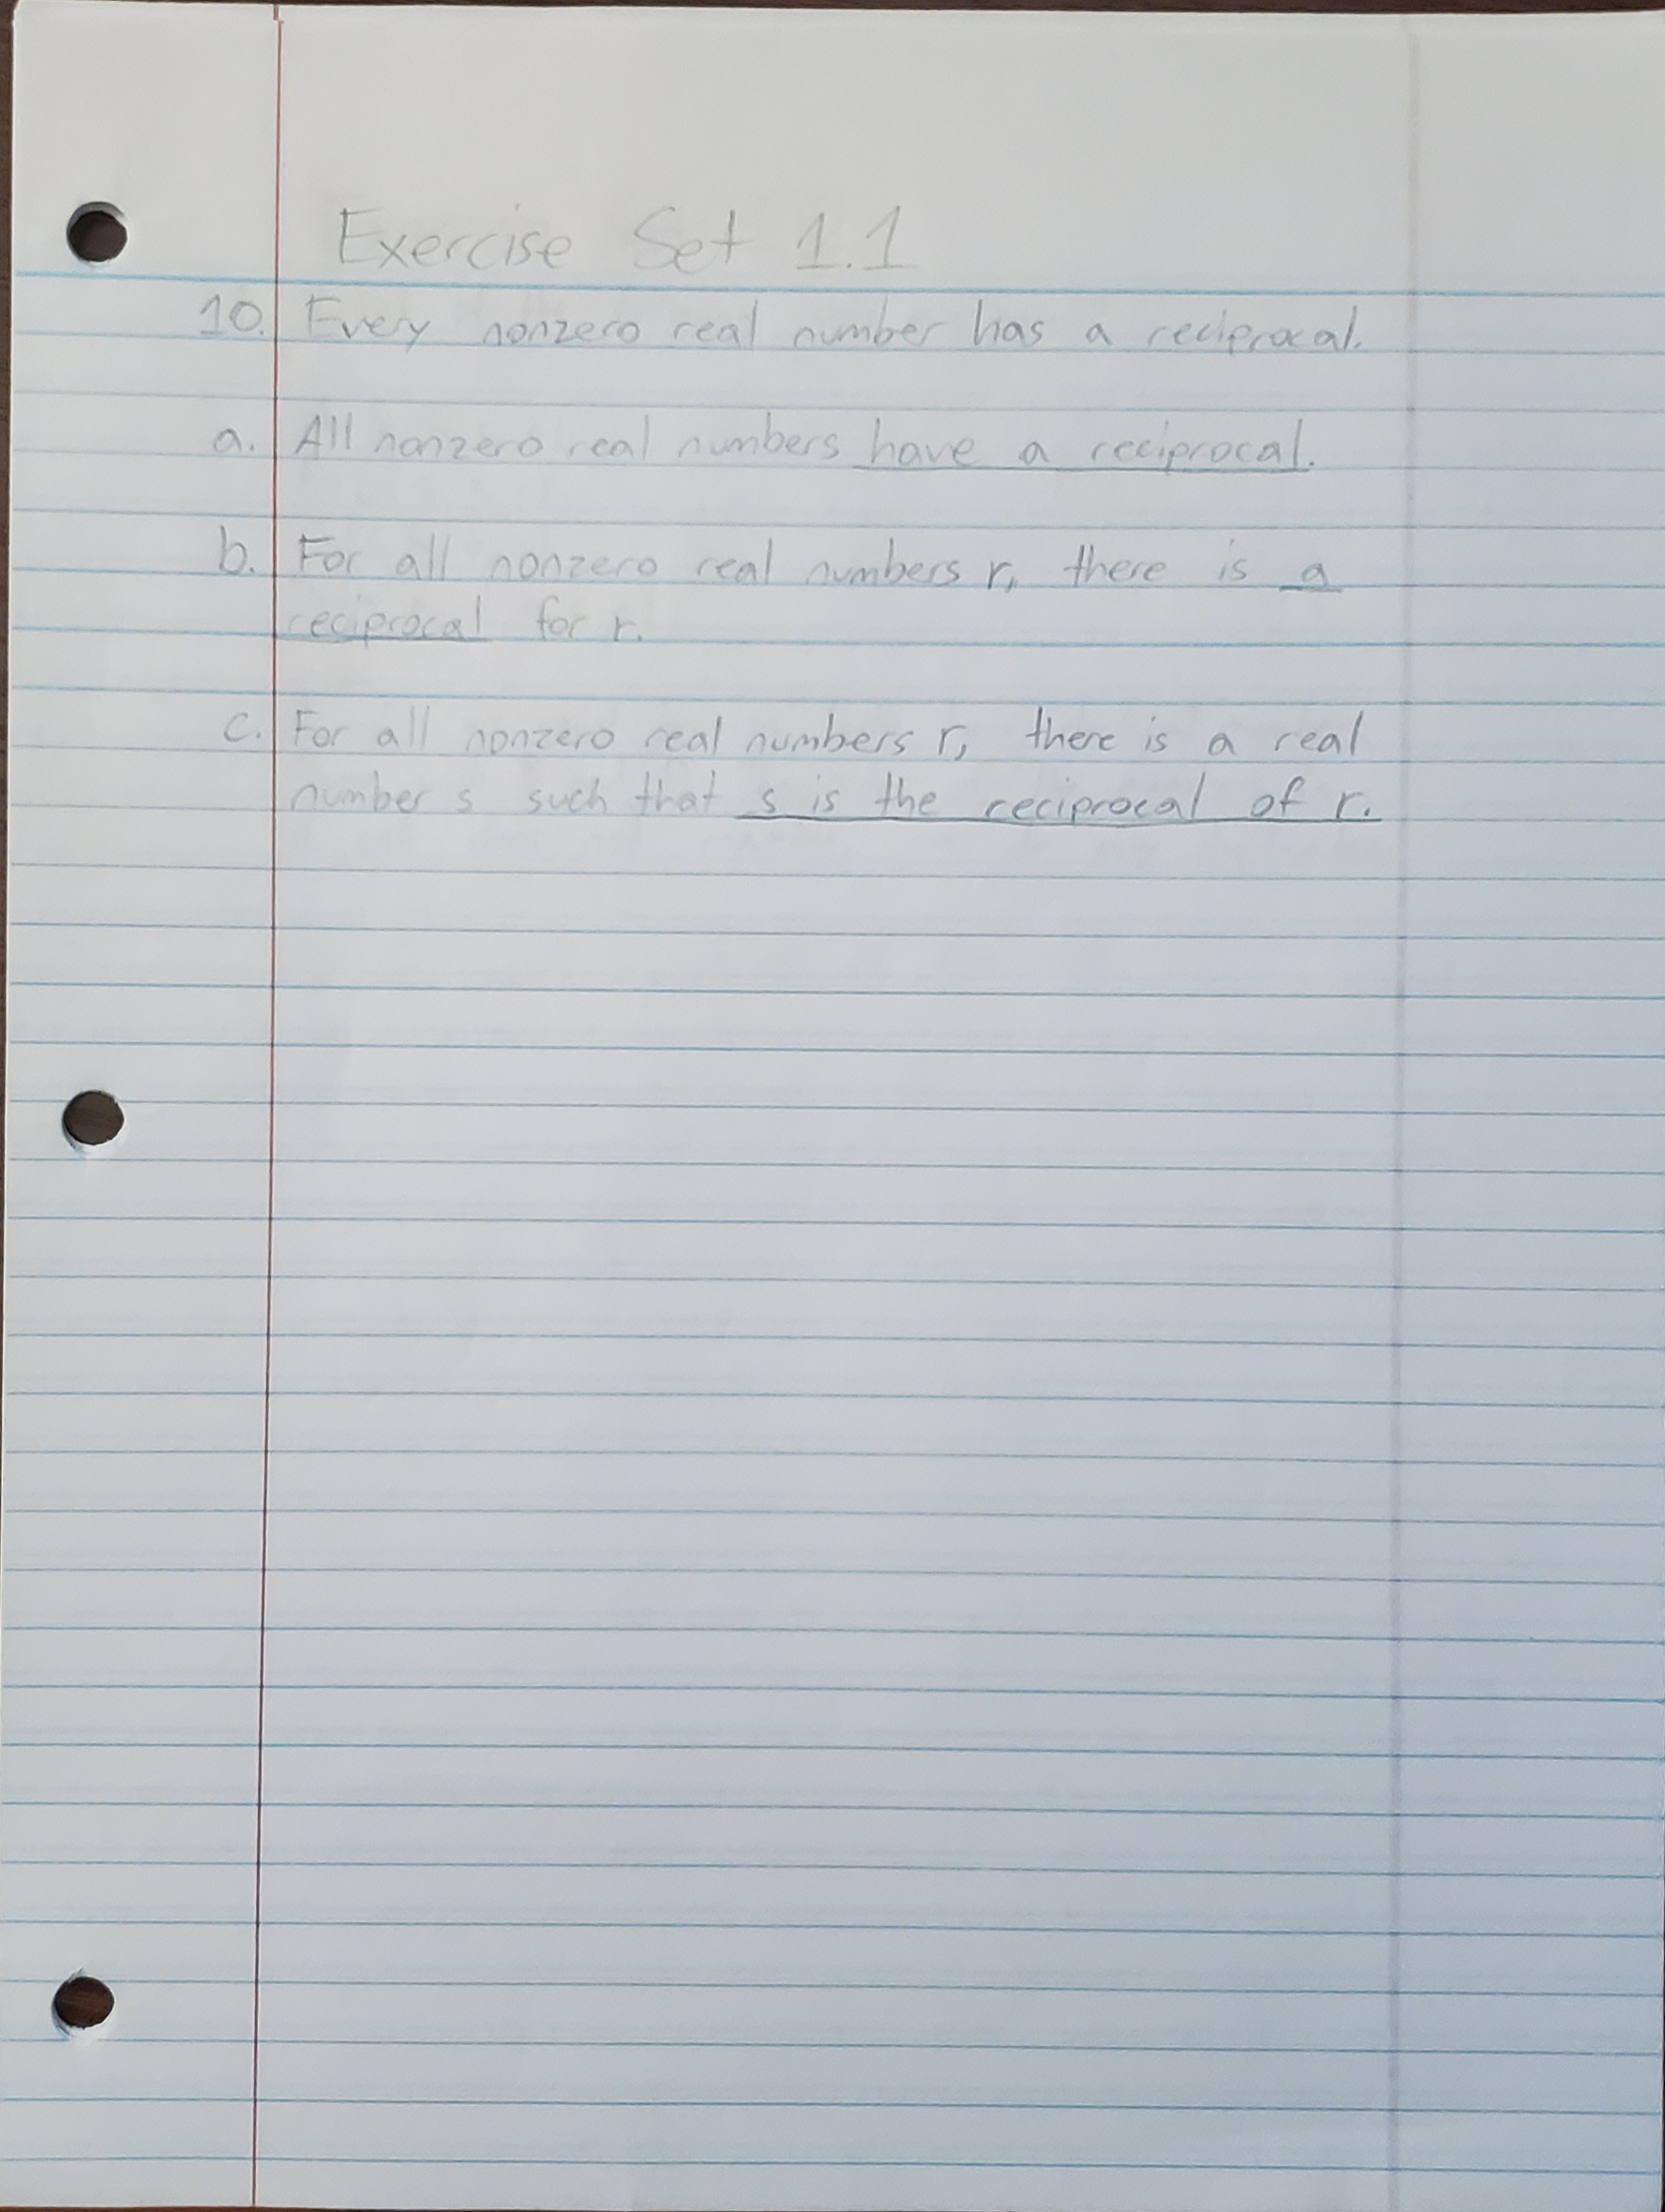 Exercise Set 1.1
10. Every nonzero real number has a reciprocal.
a. All nonzero real numbers have a reciprocal.
b. For all nonzero real numbers r, there is a
reciprocal for r.
c. For all nonzero real numbers r, there is a real
number s such that s is the reciprocal of r.